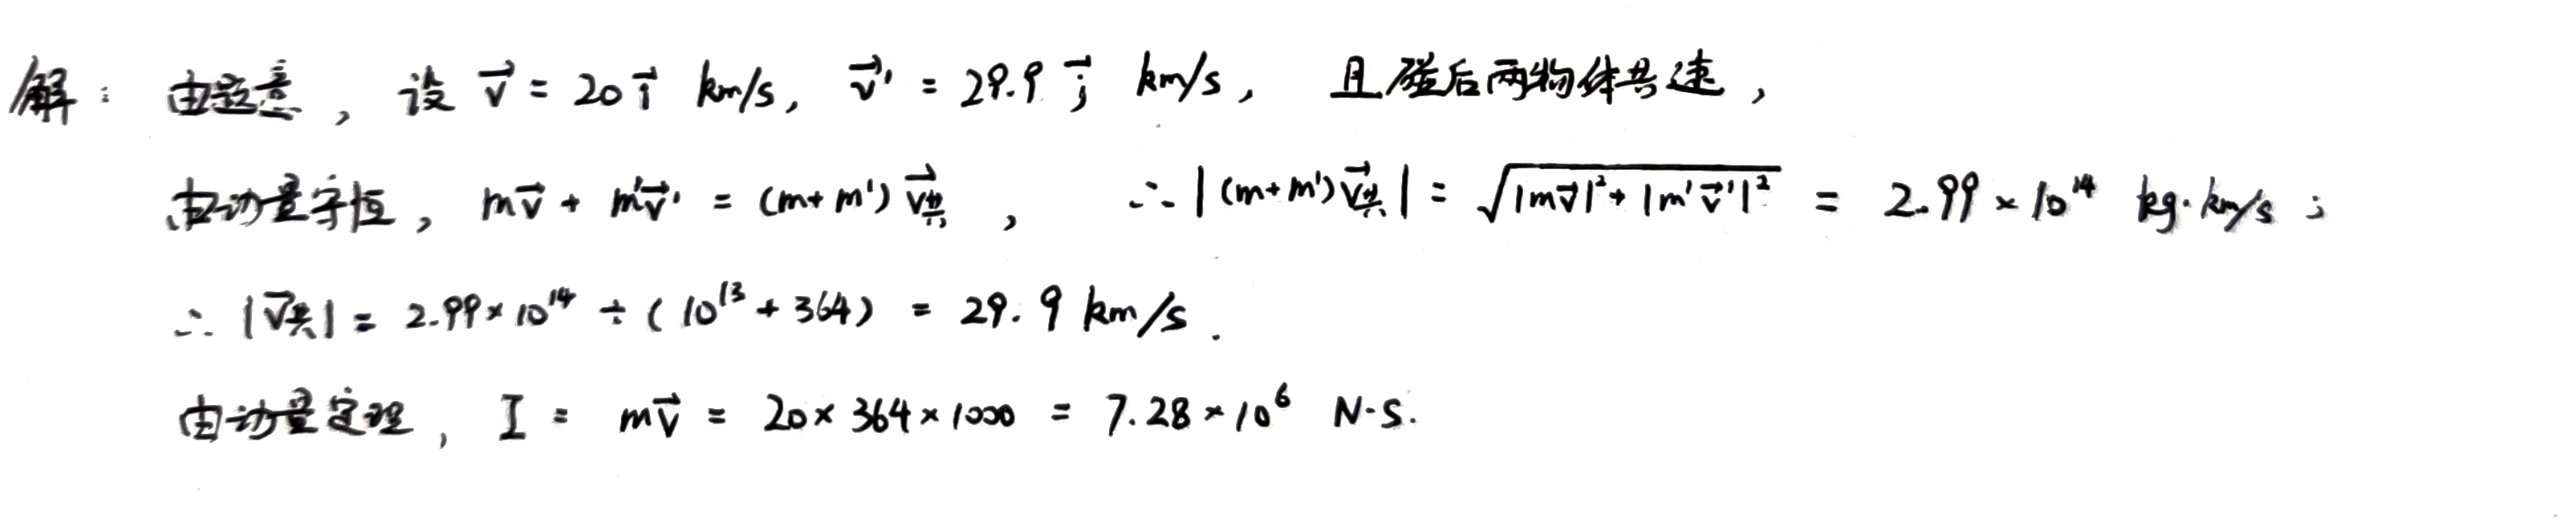 解：由题意，设 v⃗ = 20 i⃗ km/s, v⃗' = 29.9 j⃗ km/s, 且碰后两物体共速,
由动量守恒, mv⃗ + m'v⃗' = (m+m')v⃗共, ∴ |(m+m')v⃗共| = √(|mv⃗|²+|m'v⃗'|²) = 2.99×10¹⁴ kg·km/s;
∴ |v⃗共| = 2.99×10¹⁴ ÷ (10¹³+364) = 29.9 km/s.
由动量定理, I = mv⃗ = 20×364×1000 = 7.28×10⁶ N·S.